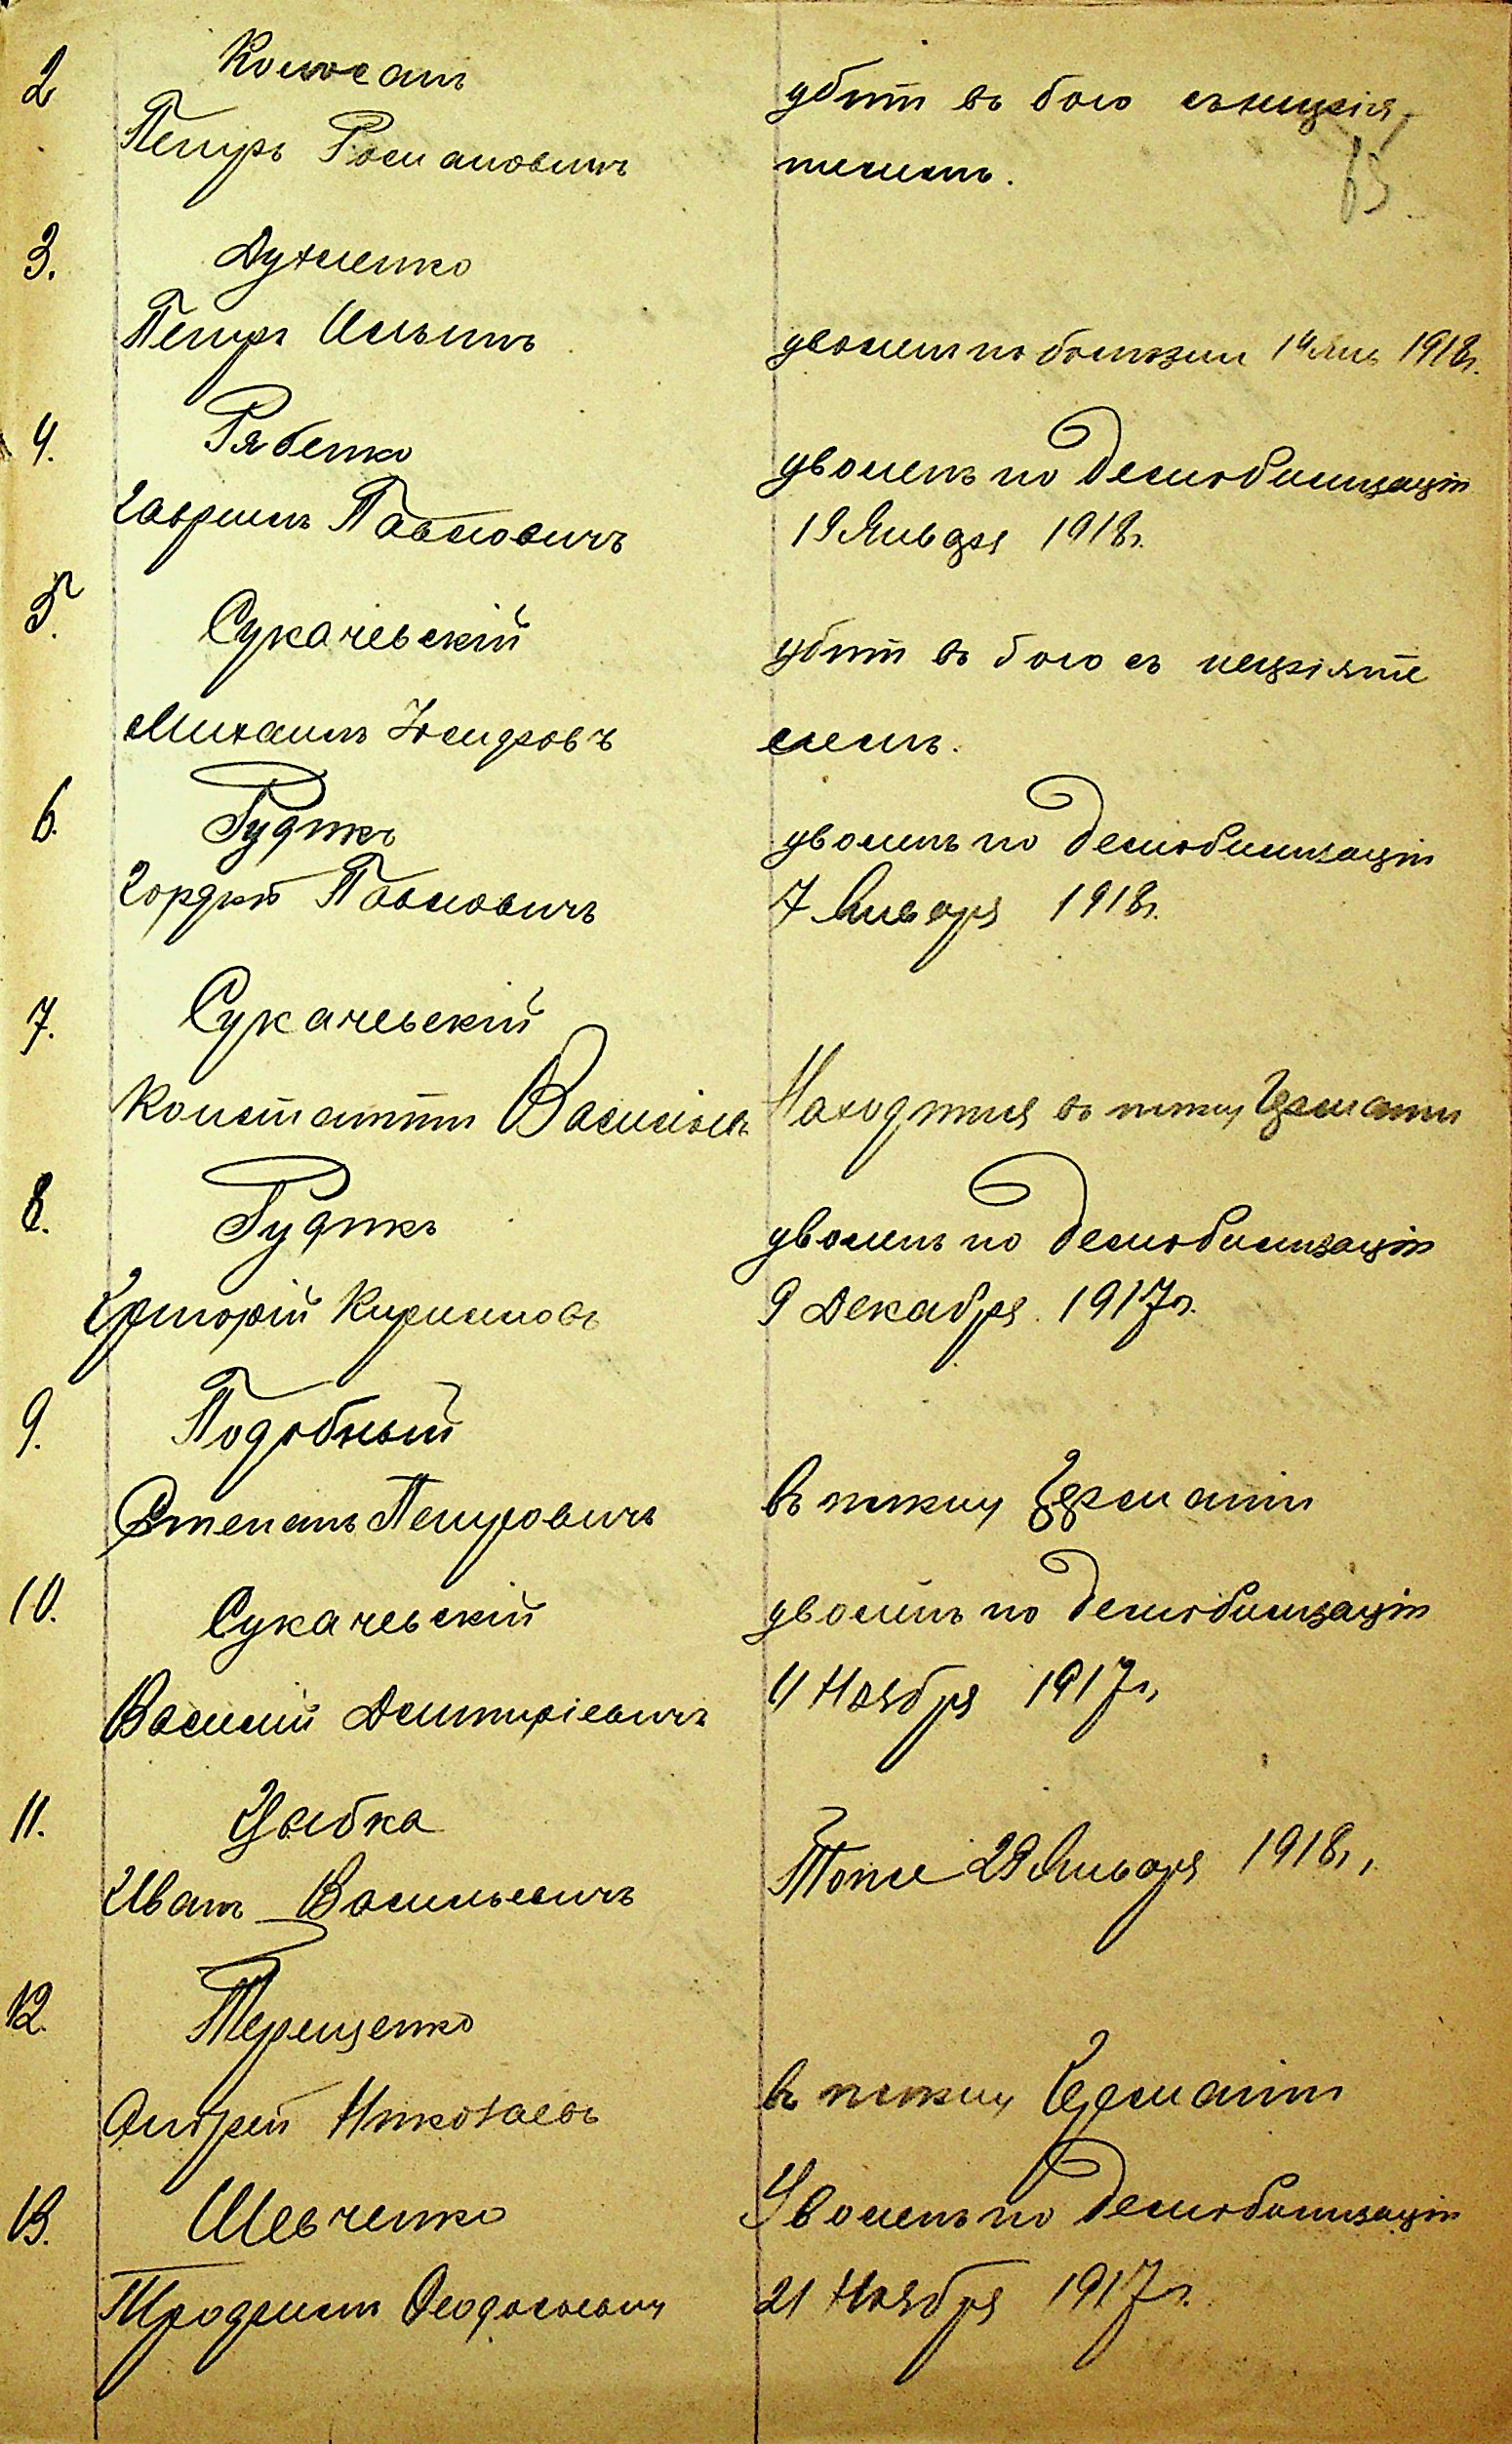 2
Петръ Романовичъ
убитъ въ бою съ непрія-
телемъ.
65
3.
Духненко
Петръ Ильинъ
уволенъ по болѣзни 14 Янв 1918г.
4.
Рябенко
Гавриилъ Павловичъ
уволенъ по демобилизаціи
19 Января 1918г.
5.
Сукачевскій
Михаилъ Юсифовъ
убитъ въ бою съ непріяте
лемъ.
6.
Рудикъ
Гордѣй Павловичъ
уволенъ по демобилизаціи
7 Января 1918г.
7.
Сукачевскій
Константинъ Василіевъ
Находится въ плѣну Германіи
8.
Рудикъ
Григорій Кириловъ
уволенъ по демобилизаціи
9 Декабря 1917г.
9.
Подобный
Степанъ Петровичъ
въ плѣну Германіи
10.
Сукачевскій
Василій Дмитріевичъ
уволенъ по демобилизаціи
11 Ноября 1917г.
11.
Цыбка
Иванъ Васильевичъ
Тоже 29 Января 1918г.
12.
Терещенко
Андрей Николаевъ
въ плѣну Германіи
13.
Шевченко
Феодосьевич
Уволенъ по демобилизаціи
21 Ноября 1917г.